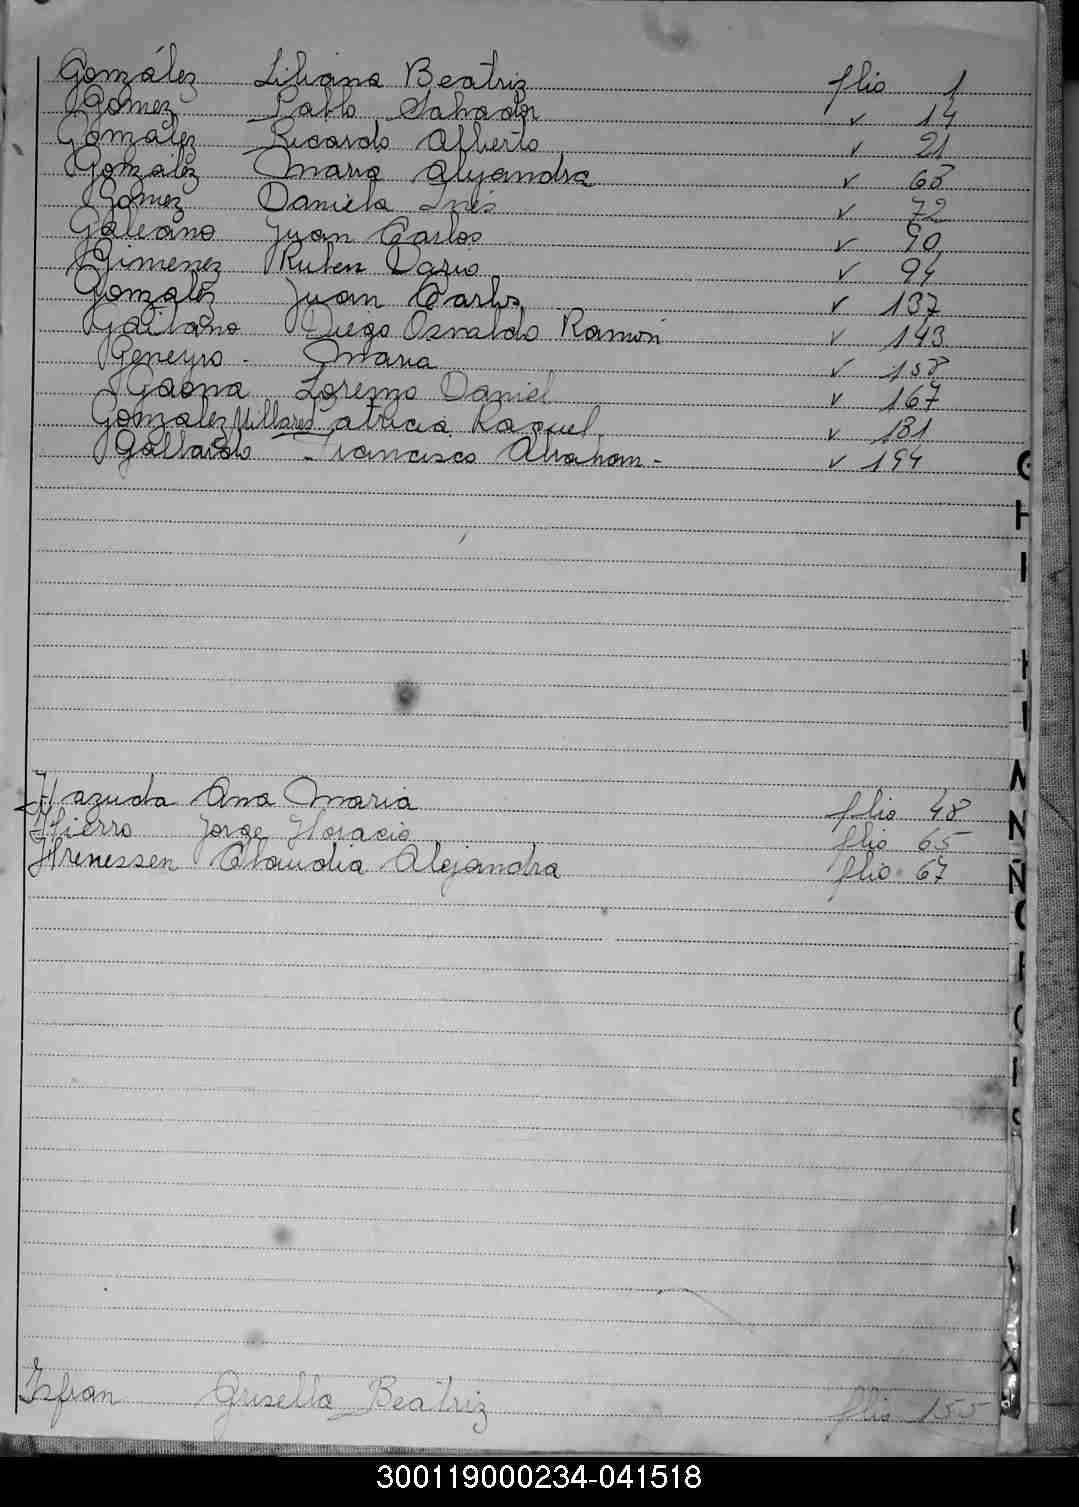 González Liliana Beatriz flio 1
Gomez Pablo Salvador v 14
Gomzalez Ricardo Alberto v 21
Gonzalez Maria Alejandra v 68
Gomez Daniela Inés v 72
Galeano Juan Carlos v 90
Gimenez Ruben Dario v 94
Gonzalez Juan Carlos v 137
Gaitano Diego Osvaldo Ramon v 143
Geneyro - Maria v 158
Gaona Lorenzo Daniel v 167
Gonzalez Millares Patricia Raquel v 181
Gallardo - Francisco Abraham - v 194
Hazuda Ana Maria flio 48
Hierro Jorge Horacio flio 65
Hrenessen Claudia Alejandra flio 67
Isfran Grisella Beatriz flio 155
300119000234-041518